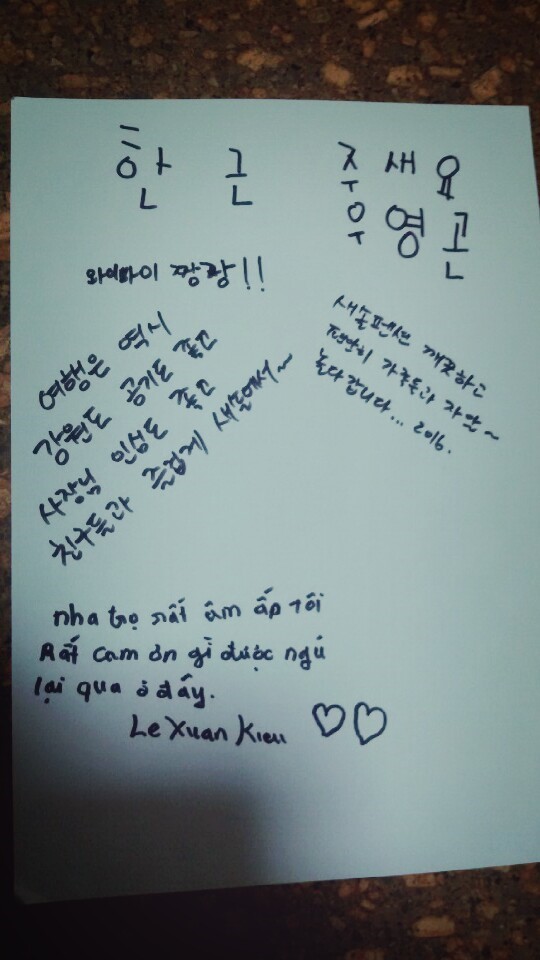 한 근
주새요
우영곤
와이파이 짱랑!!
여행은 역시
강원도 공기도 좋고
사장님 인심도 좋고
친구들과 즐겁게 새솔에서~
새솔펜션 깨끗하고
편안히 가족들과 자알~
놀다 갑니다... 2016.
nha trọ rất âm ấp tôi
Rất cam ơn gì được ngủ
lại qua ở đấy.
Le Xuan Kieu